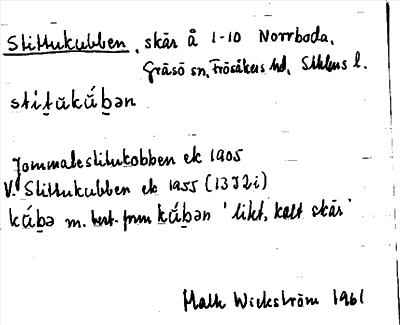 Slittukubben, skär å 1-10 Norrboda,
Gräsö sn, Frösåkers hd, Sthlms l.
stit̠ŭkǘb̠ən
Jommaleslitukobben ek 1905
V. Slittukubben ek 1955 (13I2i)
kǘb̠ə m. best. form kǘb̠ən 'litet, kalt skär'
Wickström 1961